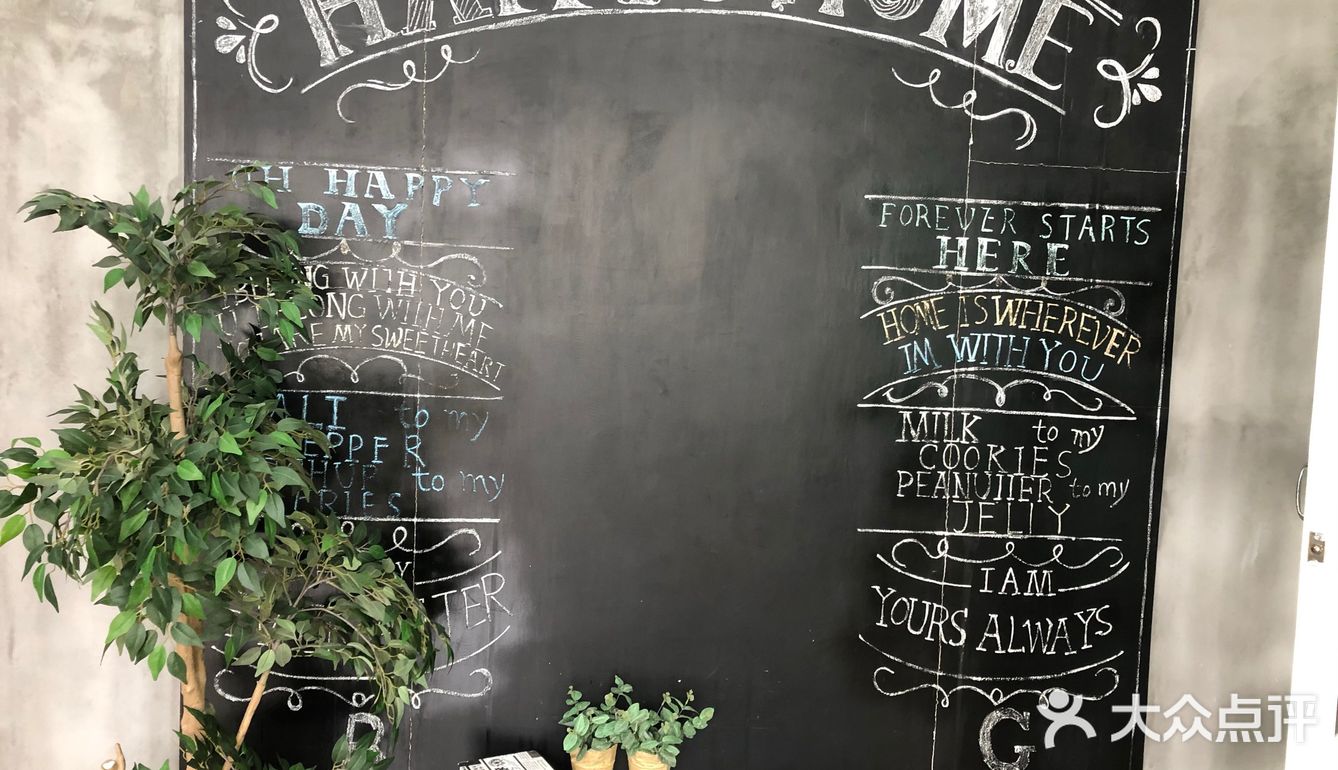 HOME
OH HAPPY
DAY
BELONG WITH YOU
BELONG WITH ME
MY SWEETHEART
to my
PEPPER
to my
FOREVER STARTS
HERE
HOME IS WHEREVER
IM WITH YOU
MILK to my
COOKIES
PEANUIIER to my
JELLY
I AM
YOURS ALWAYS
B
G
大众点评